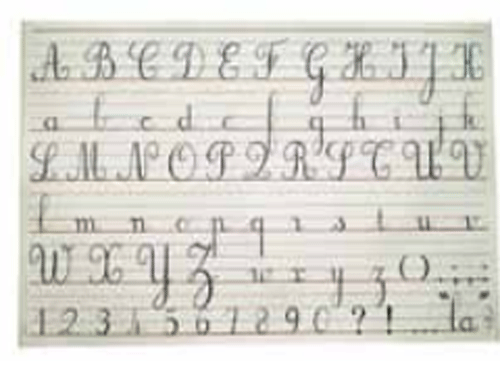 A B C D E F G H I J K
a b c d e f g h i j k
L M N O P Q R S T U V
l m n o p q r s t u v
W X Y Z w x y z () . , ; :
1 2 3 4 5 6 7 8 9 0 ? ! ... "la"